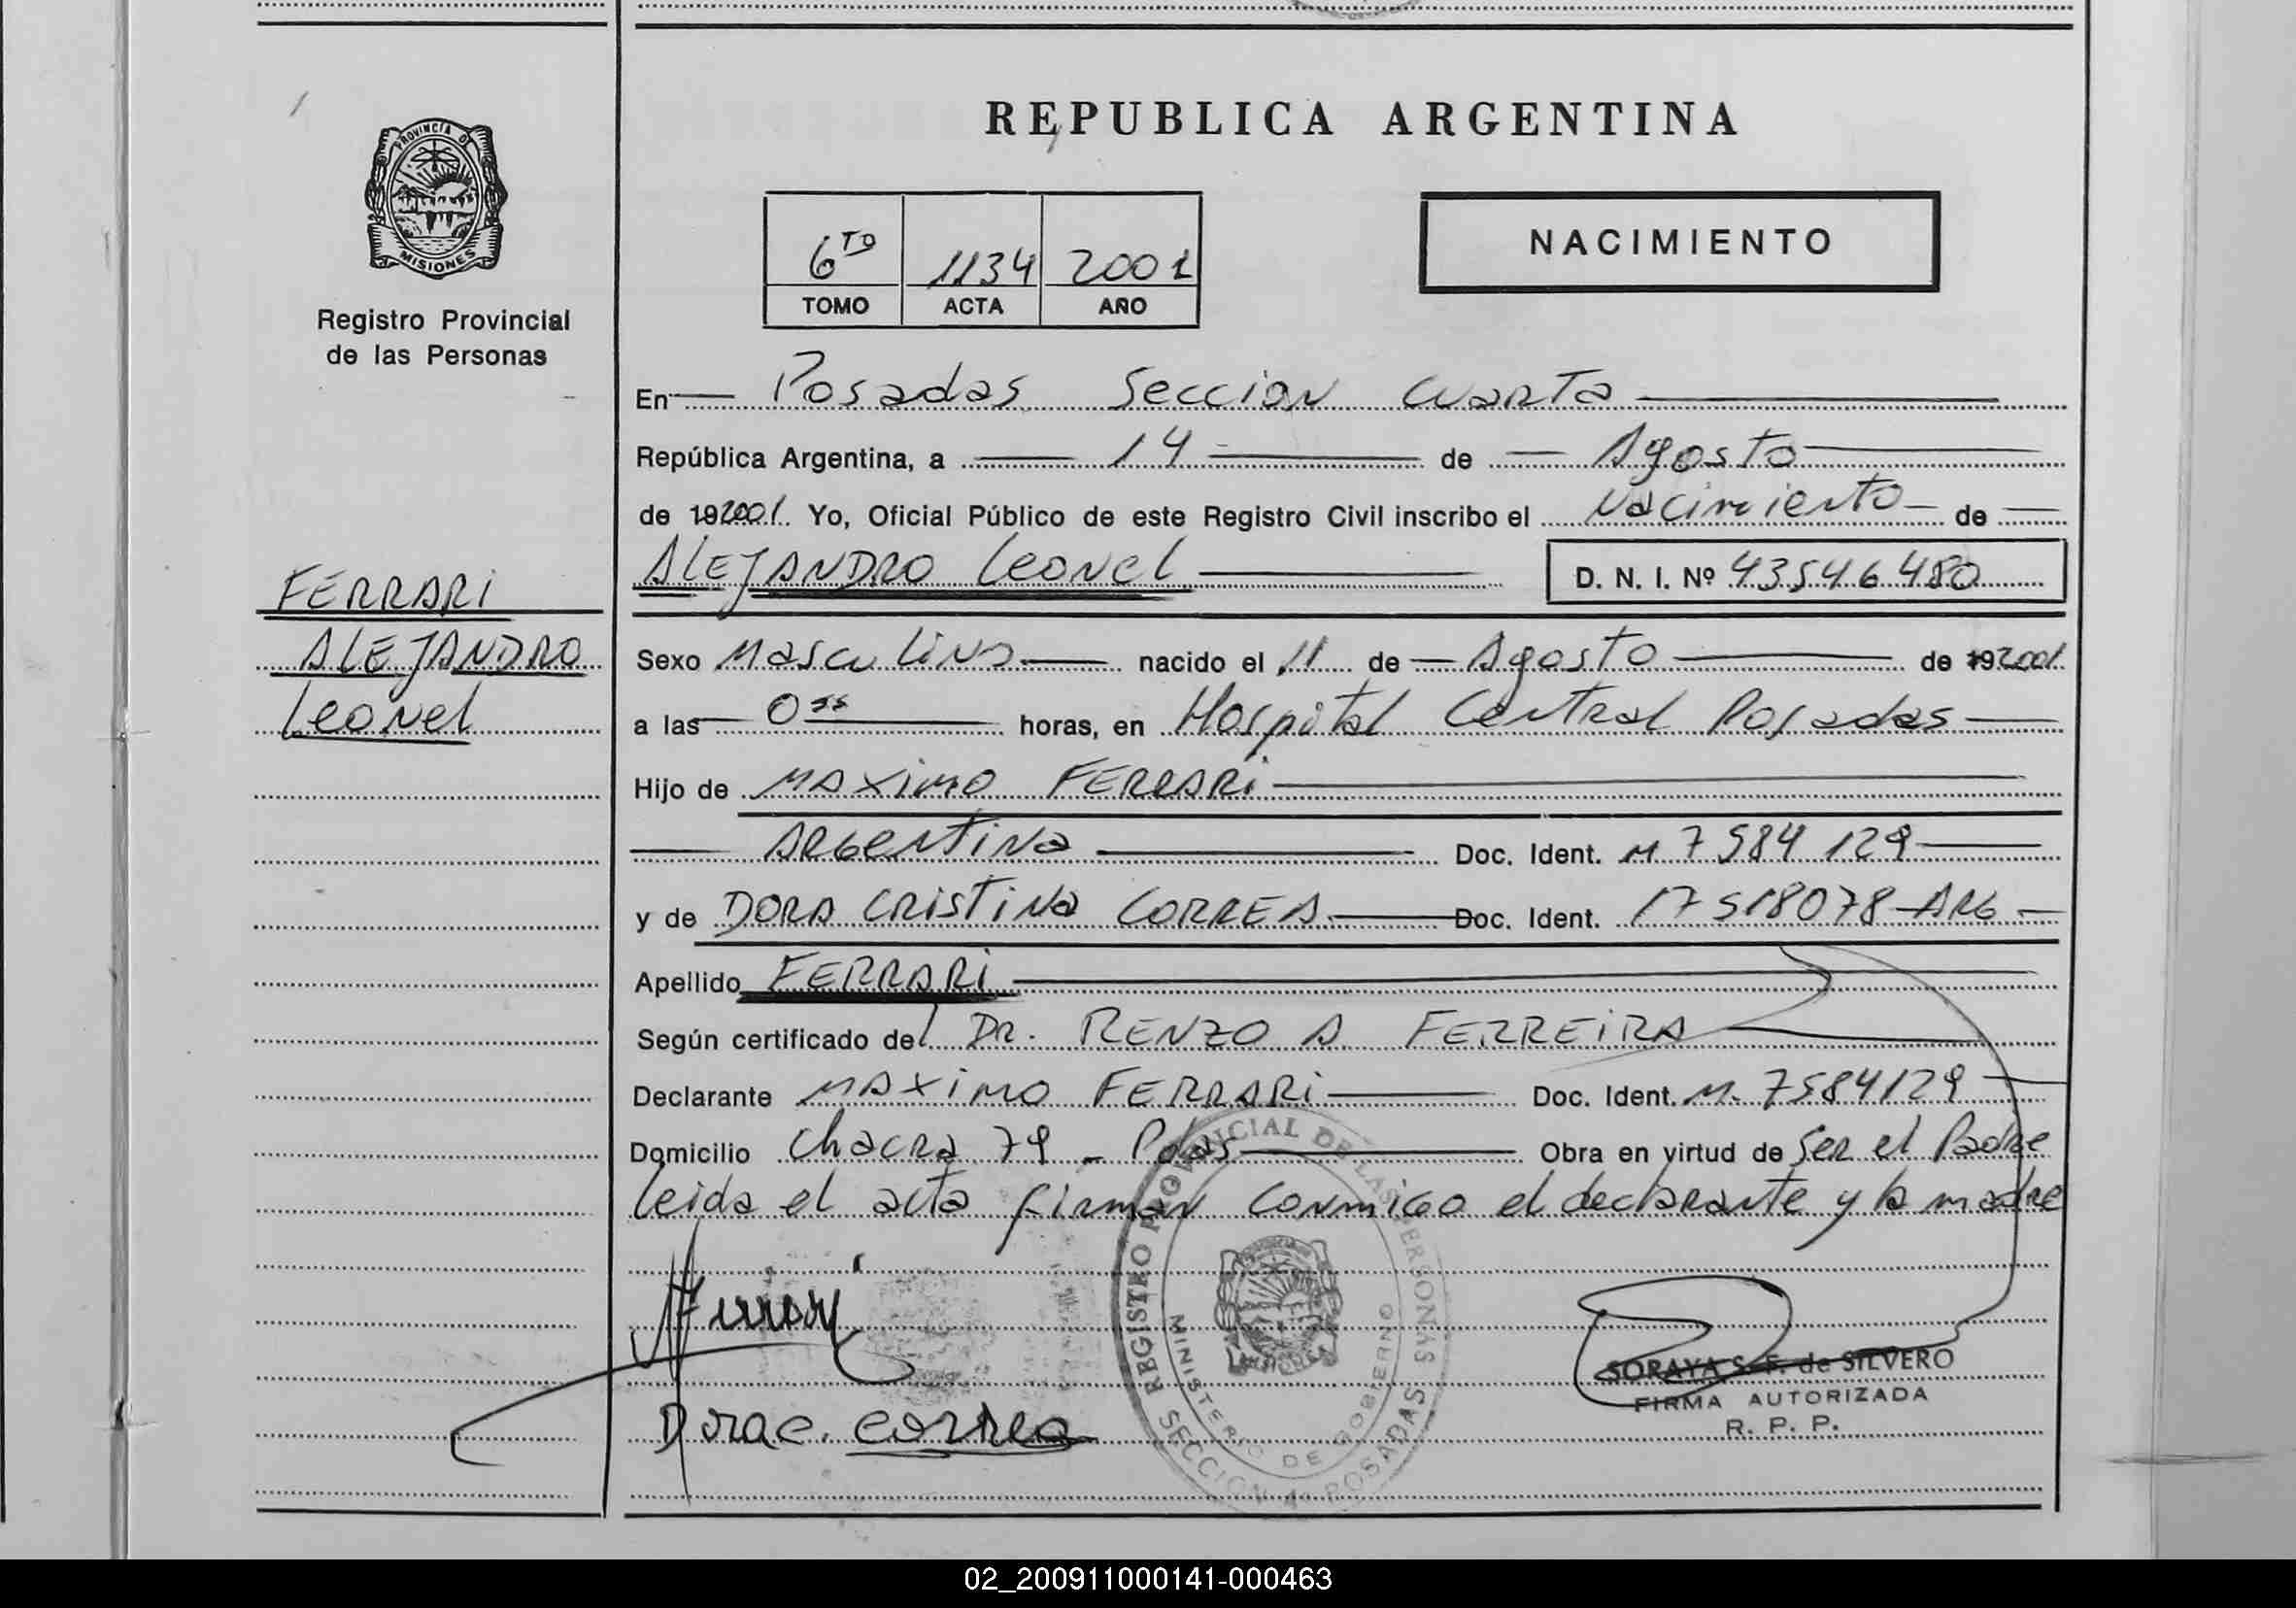 REPUBLICA ARGENTINA
PROVINCIA DE
MISIONES
Registro Provincial
de las Personas
6TO 1134 2001
TOMO ACTA AÑO
NACIMIENTO
En Posadas Seccion Cuarta
República Argentina, a 14 de Agosto
de 192001. Yo, Oficial Público de este Registro Civil inscribo el Nacimiento de
ALEJANDRO Leonel D. N. I. Nº 43546480
FERRARI
ALEJANDRO
Leonel
Sexo Masculino nacido el 11 de Agosto de 192001
a las 0 horas, en Hospital Central Posadas
Hijo de MAXIMO FERRARI
ARGentina Doc. Ident. M 7584 129
y de DORA CRISTINA CORREA Doc. Ident. 17518078-ARG
Apellido FERRARI
Según certificado del DR. RENZO A FERREIRA
Declarante MAXIMO FERRARI Doc. Ident. M. 7584129
Domicilio Chacra 79 - Pdas Obra en virtud de Ser el Padre
leida el acta firman conmigo el declarante y la madre
REGISTRO PROVINCIAL DE LAS PERSONAS
MINISTERIO DE GOBIERNO
SECCION 4º POSADAS
Dora C. Correa
SORAYA S. F. de SILVERO
FIRMA AUTORIZADA
R. P. P.
02_200911000141-000463